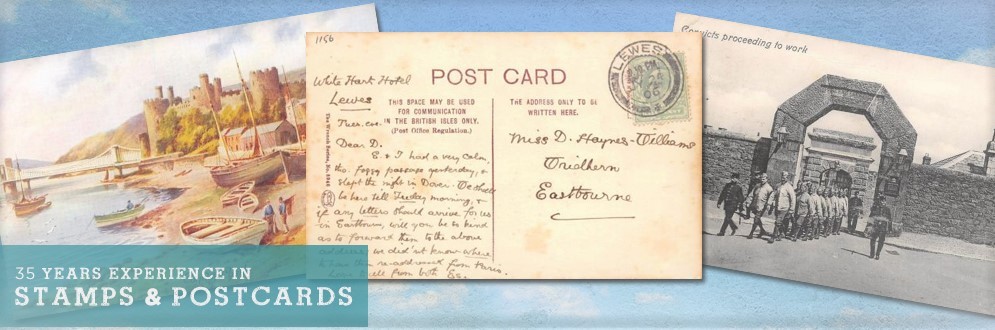 1156
White Hart Hotel
Lewes
Tues. eve.
POST CARD
THIS SPACE MAY BE USED
FOR COMMUNICATION
IN THE BRITISH ISLES ONLY.
(Post Office Regulation.)
THE ADDRESS ONLY TO BE
WRITTEN HERE.
LEWES
Dear D.
E. & I had a very calm,
tho. foggy passage yesterday, &
slept the night in
be here till morning, &
if any letters should arrive for us
in Eastbourne, will you be so kind
as to forward them to the above
we did n't know where
re-address from Paris.
from both
Miss D. Haynes-Williams
Eastbourne
Convicts proceeding to work
35 YEARS EXPERIENCE IN
STAMPS & POSTCARDS